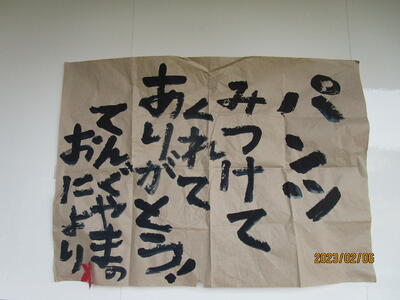 パンツ
みつけて
くれて
ありがとう!
てんぐやまの
おにより
2023/02/06